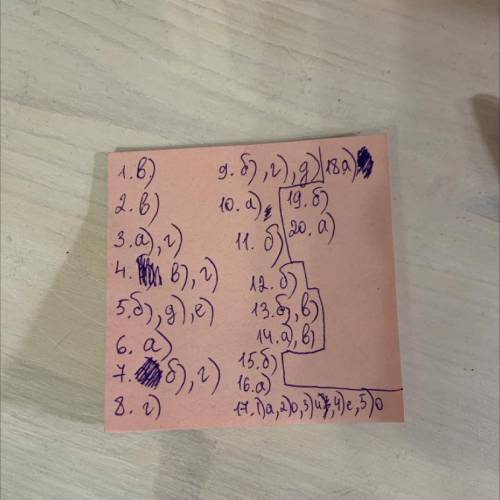 1. в)
2. в)
3. а), г)
4. в), г)
5. б), д), е)
6. а)
7. б), г)
8. г)
9. б), г), д)
10. а)
11. б)
12. б)
13. б), в)
14. а), в)
15. б)
16. а)
17. 1) а, 2) о, 3) и, 4) е, 5) о
18 а)
19. б)
20. а)